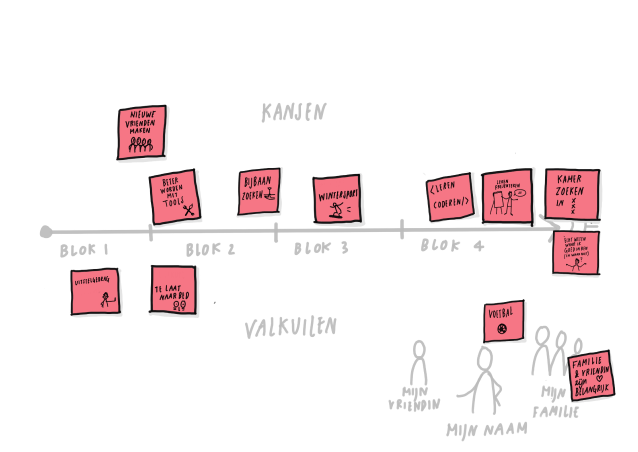 KANSEN
NIEUWE
VRIENDEN
MAKEN
BETER
WORDEN
MET
TOOLS
BIJBAAN
ZOEKEN
WINTERSPORT
<LEREN
CODEREN/>
LEREN
PRESENTEREN
KAMER
ZOEKEN
IN X
X
X
BLOK 1
BLOK 2
BLOK 3
BLOK 4
UITSTELGEDRAG
TE LAAT
NAAR BED
VALKUILEN
VOETBAL
FAMILIE
& VRIENDIN
ZIJN
BELANGRIJK
MIJN
VRIENDIN
MIJN NAAM
MIJN
FAMILIE